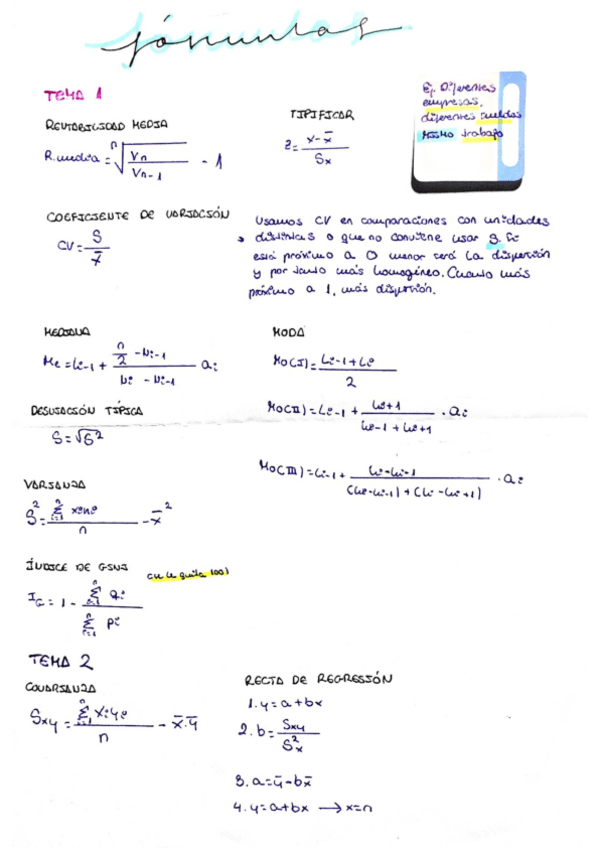 fórmulas
TEMA 1
RENTABILIDAD MEDIA
R.media = ⁿ√(Vn / Vn-1) - 1
TIPIFICAR
z = (x - x̄) / Sx
Ej. Diferentes
empresas,
diferentes sueldos
MISMO trabajo
COEFICIENTE DE VARIACIÓN
CV = S / x̄
Usamos CV en comparaciones con unidades
distintas o que no conviene usar S. Si
está próximo a 0 menor será la dispersión
y por tanto más homogéneo. Cuanto más
próximo a 1, más dispersión.
MEDIANA
Me = Li-1 + (n/2 - Ni-1) / (Ni - Ni-1) ai
MODA
Mo(I) = (Li-1 + Li) / 2
DESVIACIÓN TÍPICA
S = √S²
Mo(II) = Li-1 + hi+1 / (hi-1 + hi+1) · ai
Mo(III) = Li-1 + (hi - hi-1) / ((hi - hi-1) + (hi - hi+1)) · ai
VARIANZA
S² = Σ xi ni / n - x̄²
ÍNDICE DE GINI
IG = 1 - Σ qi / Σ pi
TEMA 2
COVARIANZA
Sxy = Σ xi yi / n - x̄.ȳ
RECTA DE REGRESIÓN
1. y = a + bx
2. b = Sxy / S²x
3. a = ȳ - bx̄
4. y = a + bx → x = n